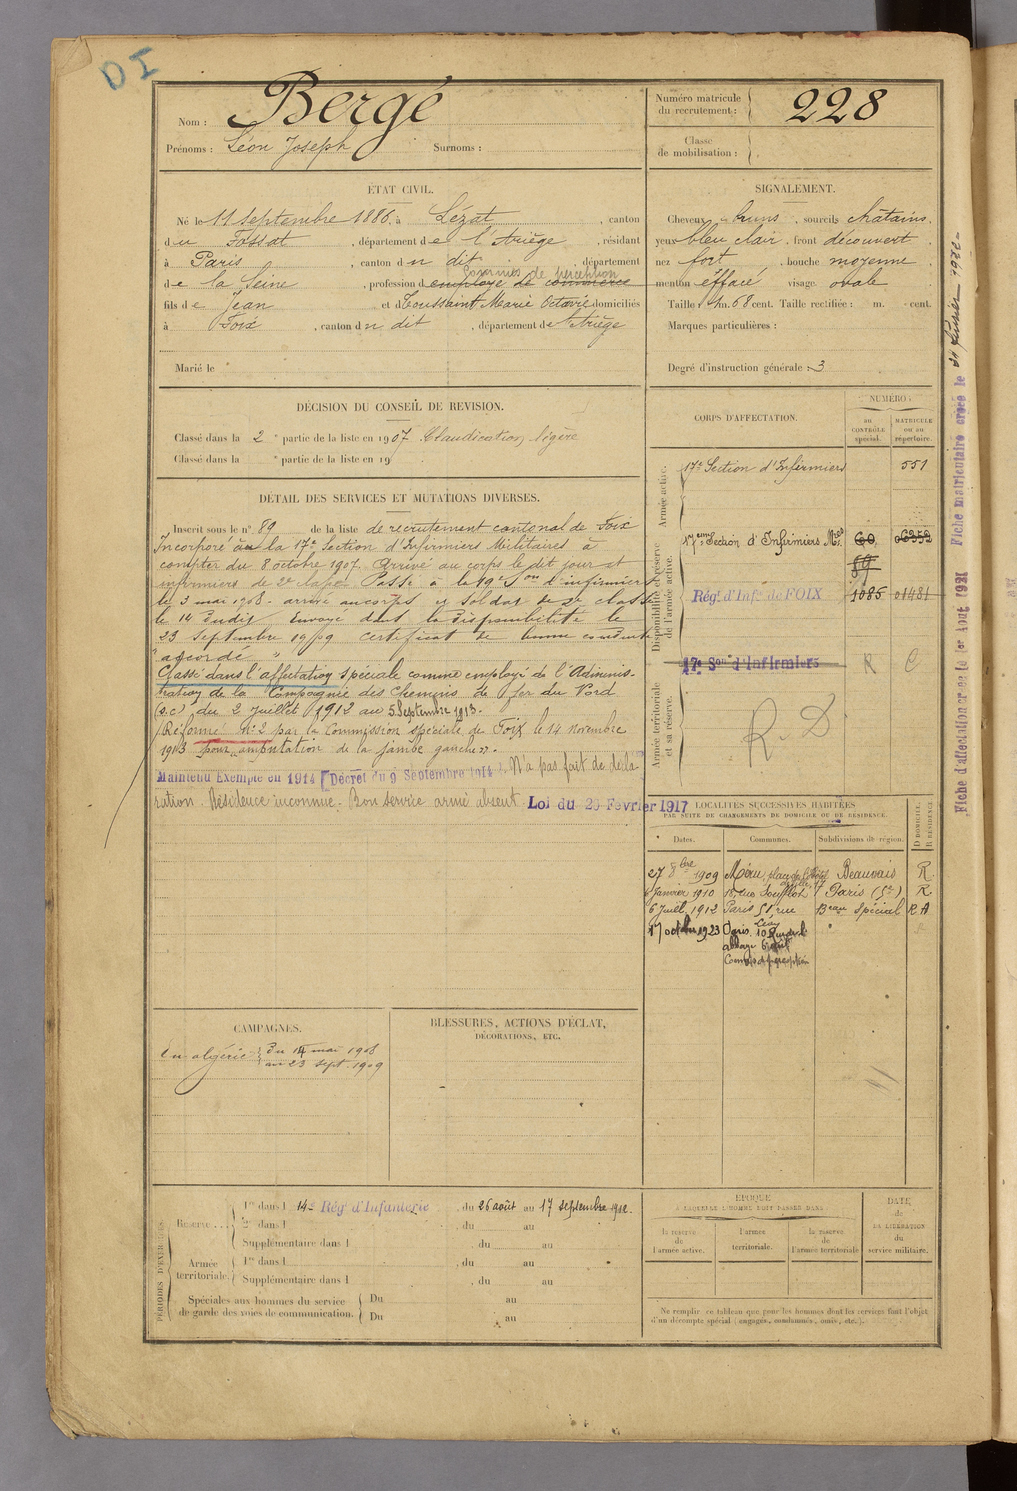 DI
Nom : Bergé
Prénoms : Léon Joseph Surnoms :
Numéro matricule du recrutement : 228
Classe de mobilisation :
ÉTAT CIVIL.
Né le 11 Septembre 1886, à Lézat, canton
du Fossat, département de l'Ariège, résidant
à Paris, canton du dit, département
Commis de perception
de la Seine, profession d employé de commerce
fils de Jean et de Toussaint Marie Octavie domiciliés
à Foix, canton du dit, département de l'Ariège
Marié le
SIGNALEMENT.
Cheveux bruns, sourcils chatains,
yeux bleu clair, front découvert
nez fort, bouche moyenne,
menton effacé visage ovale
Taille : 1 m. 68 cent. Taille rectifiée : m. cent.
Marques particulières :
Degré d'instruction générale : 3
DÉCISION DU CONSEIL DE REVISION.
Classé dans la 2e partie de la liste en 1907. Claudication légère
Classé dans la e partie de la liste en 19
DÉTAIL DES SERVICES ET MUTATIONS DIVERSES.
Inscrit sous le n° 89 de la liste de recrutement cantonal de Foix
Incorporé à la 17e Section d'Infirmiers Militaires à
compter du 8 octobre 1907. Arrivé au corps le dit jour et
infirmiers de 2e classe. Passé à la 19e Son d'infirmiers
le 3 mai 1908. arrivé au corps et soldat de 2e classe
le 14 dudit. Envoyé dans la disponibilité le
23 Septembre 1909 certificat de bonne conduite
"accordé"
Classé dans l'affectation spéciale comme employé de l'Adminis-
tration de la Compagnie des Chemins de fer du Nord
(s.c.) du 2 Juillet 1912 au 5 Septembre 1913.
Réformé n° 2 par la Commission spéciale de Foix le 14 novembre
1913 pour "amputation de la jambe gauche".
Maintenu Exempté en 1914 [Décret du 9 Septembre 1914]. N'a pas fait de décla-
ration. Résidence inconnue. Bon service armé absent. Loi du 20 Février 1917
CORPS D'AFFECTATION.
NUMÉRO :
au CONTRÔLE spécial.
MATRICULE ou au répertoire.
Armée active.
17e Section d'Infirmiers 551
Disponibilité et réserve de l'armée active.
17eme Section d'Infirmiers Mres 60 06352
89
Régt d'Infie de FOIX 1085 01481
17e Son d'Infirmiers R C
Armée territoriale et sa réserve.
R. D.
LOCALITÉS SUCCESSIVES HABITÉES
PAR SUITE DE CHANGEMENTS DE DOMICILE OU DE RÉSIDENCE.
Dates. Communes. Subdivisions de région. D DOMICILE. R RÉSIDENCE.
27 8bre 1909 Méru, place de l'Hôtel de Ville, 17 Beauvais R
6 Janvier 1910 18, rue Soufflot Paris (5e) R
6 Juil. 1912 Paris 51 rue Beau Spécial R A
17 octobre 1923 Paris 10 Rue de l'
abbaye
Commis de perception
CAMPAGNES.
En algérie : du 14 mai 1908
au 23 sept. 1909
BLESSURES, ACTIONS D'ÉCLAT,
DÉCORATIONS, ETC.
PÉRIODES D'EXERCICES.
Réserve....
1re dans l 14e Régt d'Infanterie, du 26 août au 17 septembre 1912.
2e dans l , du au
Supplémentaire dans l , du au
Armée territoriale.
1re dans l , du au
Supplémentaire dans l , du au
Spéciales aux hommes du service de garde des voies de communication.
Du au
Du au
ÉPOQUE
À LAQUELLE L'HOMME DOIT PASSER DANS
la réserve de l'armée active.
l'armée territoriale.
la réserve de l'armée territoriale
DATE de LA LIBÉRATION du service militaire.
Ne remplir ce tableau que pour les hommes dont les services font l'objet
d'un décompte spécial (engagés, condamnés, omis, etc.).
Fiche d'affectation créée le 1er Aout 1921 Fiche matriculaire créée le février